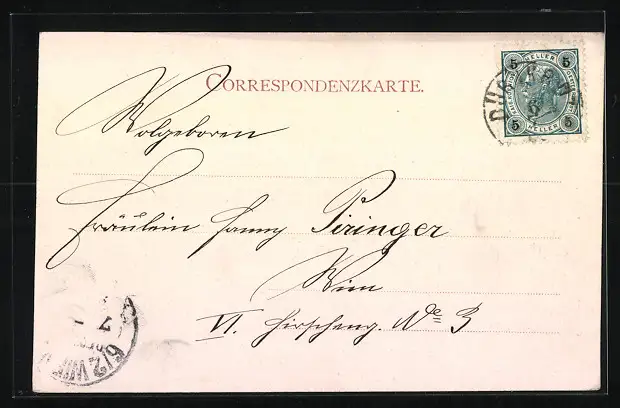 CORRESPONDENZKARTE.
5 5
HELLER
5 5
HELLER
Wolgeboren
Fräulein Fanny Piringer
Wien
VI. Hirscheng. No 3
7
6/2 WIEN